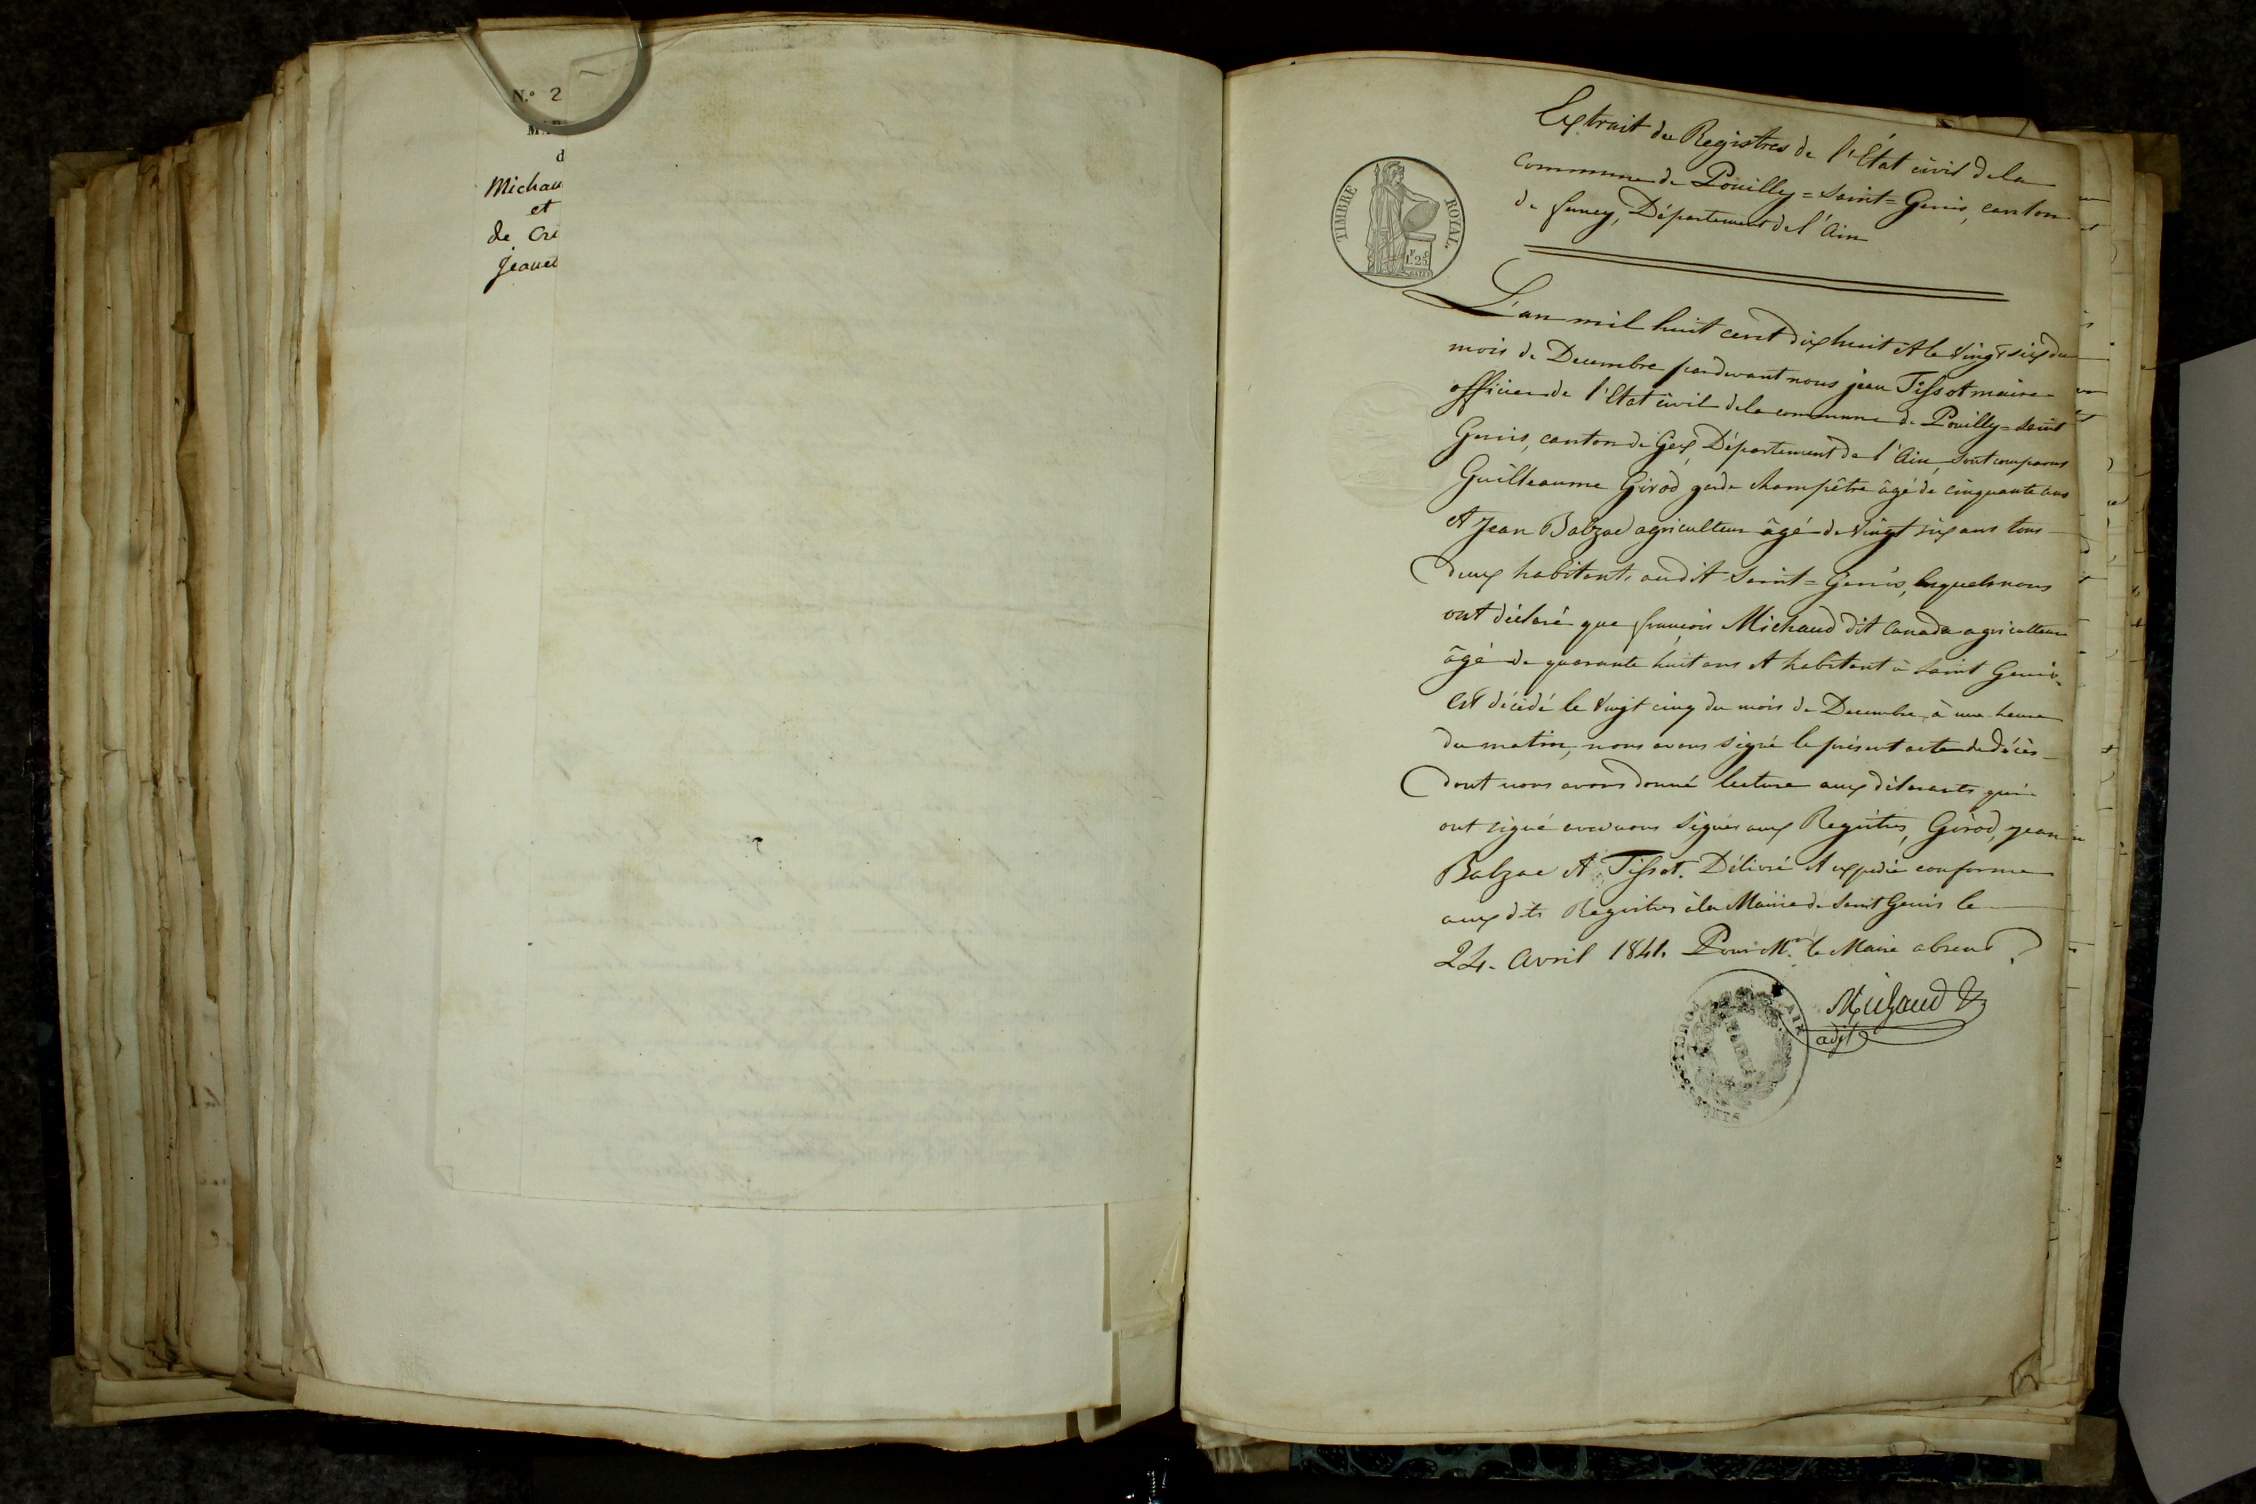 N.º 2
d
Michau
et
de Cre
Jeanet
Extrait des Registres de l'Etat civil de la
commune de Pouilly=Saint=Genis, canton
de ferney, Département de l'Ain
TIMBRE ROYAL.
1.25
L'an mil huit cent dix huit et le vingt six du
mois de Decembre pardevant nous jean Tissot maire
officier de l'Etat civil de la commune de Pouilly=Saint
Genis, canton de Gex, Département de l'Ain, sont comparus
Guilleaume Girod garde champêtre âgé de cinquante ans
et Jean Balzac agriculteur âgé de vingt six ans tous
deux habitants audit Saint=Genis, lesquels nous
ont déclaré que françois Michaud dit Canada agriculteur
âgé de quarante huit ans et habitant à Saint Genis
est décédé le vingt cinq du mois de Decembre à une heure
du matin, nous avons signé le présent acte de décès
dont nous avons donné lecture aux déclarants qui
ont signé avec nous Signés aux Registres, Girod, jean
Balzac et Tissot. Délivré et expédié conforme
aux dits Registres à la Mairie de Saint Genis le
24. Avril 1841. Pour Mr. le Maire absent
Michaud
adjt